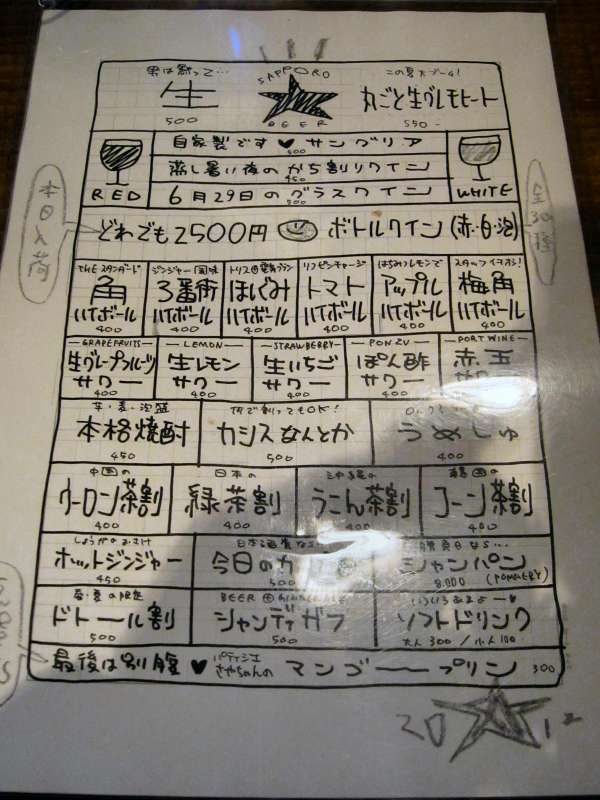 男は黙って…
生
500
SAPPORO
BEER
この夏大ブーム!
丸ごと生グレモヒート
550-
RED
自家製です♥サングリア
500
蒸し暑い夜のかち割りワイン
450
6月29日のグラスワイン
500
WHITE
本日入荷
どれでも2500円 ボトルワイン(赤・白・泡)
全30種
THEスタンダード
角
ハイボール
400
ジンジャー風味
3番街
ハイボール
400
ほしぐみ
ハイボール
400
トマト
ハイボール
400
はちみつレモンで
アップル
ハイボール
400
スタッフイチオシ!
梅角
ハイボール
400
GRAPEFRUITS
生グレープフルーツ
サワー
400
LEMON
生レモン
サワー
400
STRAWBERRY
生いちご
サワー
400
PONZU
ぽん酢
サワー
400
PORTWINE
赤玉
サワー
芋・麦・泡盛
本格焼酎
450
何で割ってもOK!
カシスなんとか
500
うめしゅ
400
中国の
ウーロン茶割
400
日本の
緑茶割
400
沖縄の
うこん茶割
400
韓国の
コーン茶割
400
しょうがのお酒
ホットジンジャー
450
日本酒
今日の
500
シャンパン
8,000 (POMMERY)
ドトール割
500
BEER
シャンディガフ
500
いろいろあるよー♥
ソフトドリンク
大人300/小人100
最後は別腹♥
パティシエ
さやちゃんの
マンゴープリン
300
2012